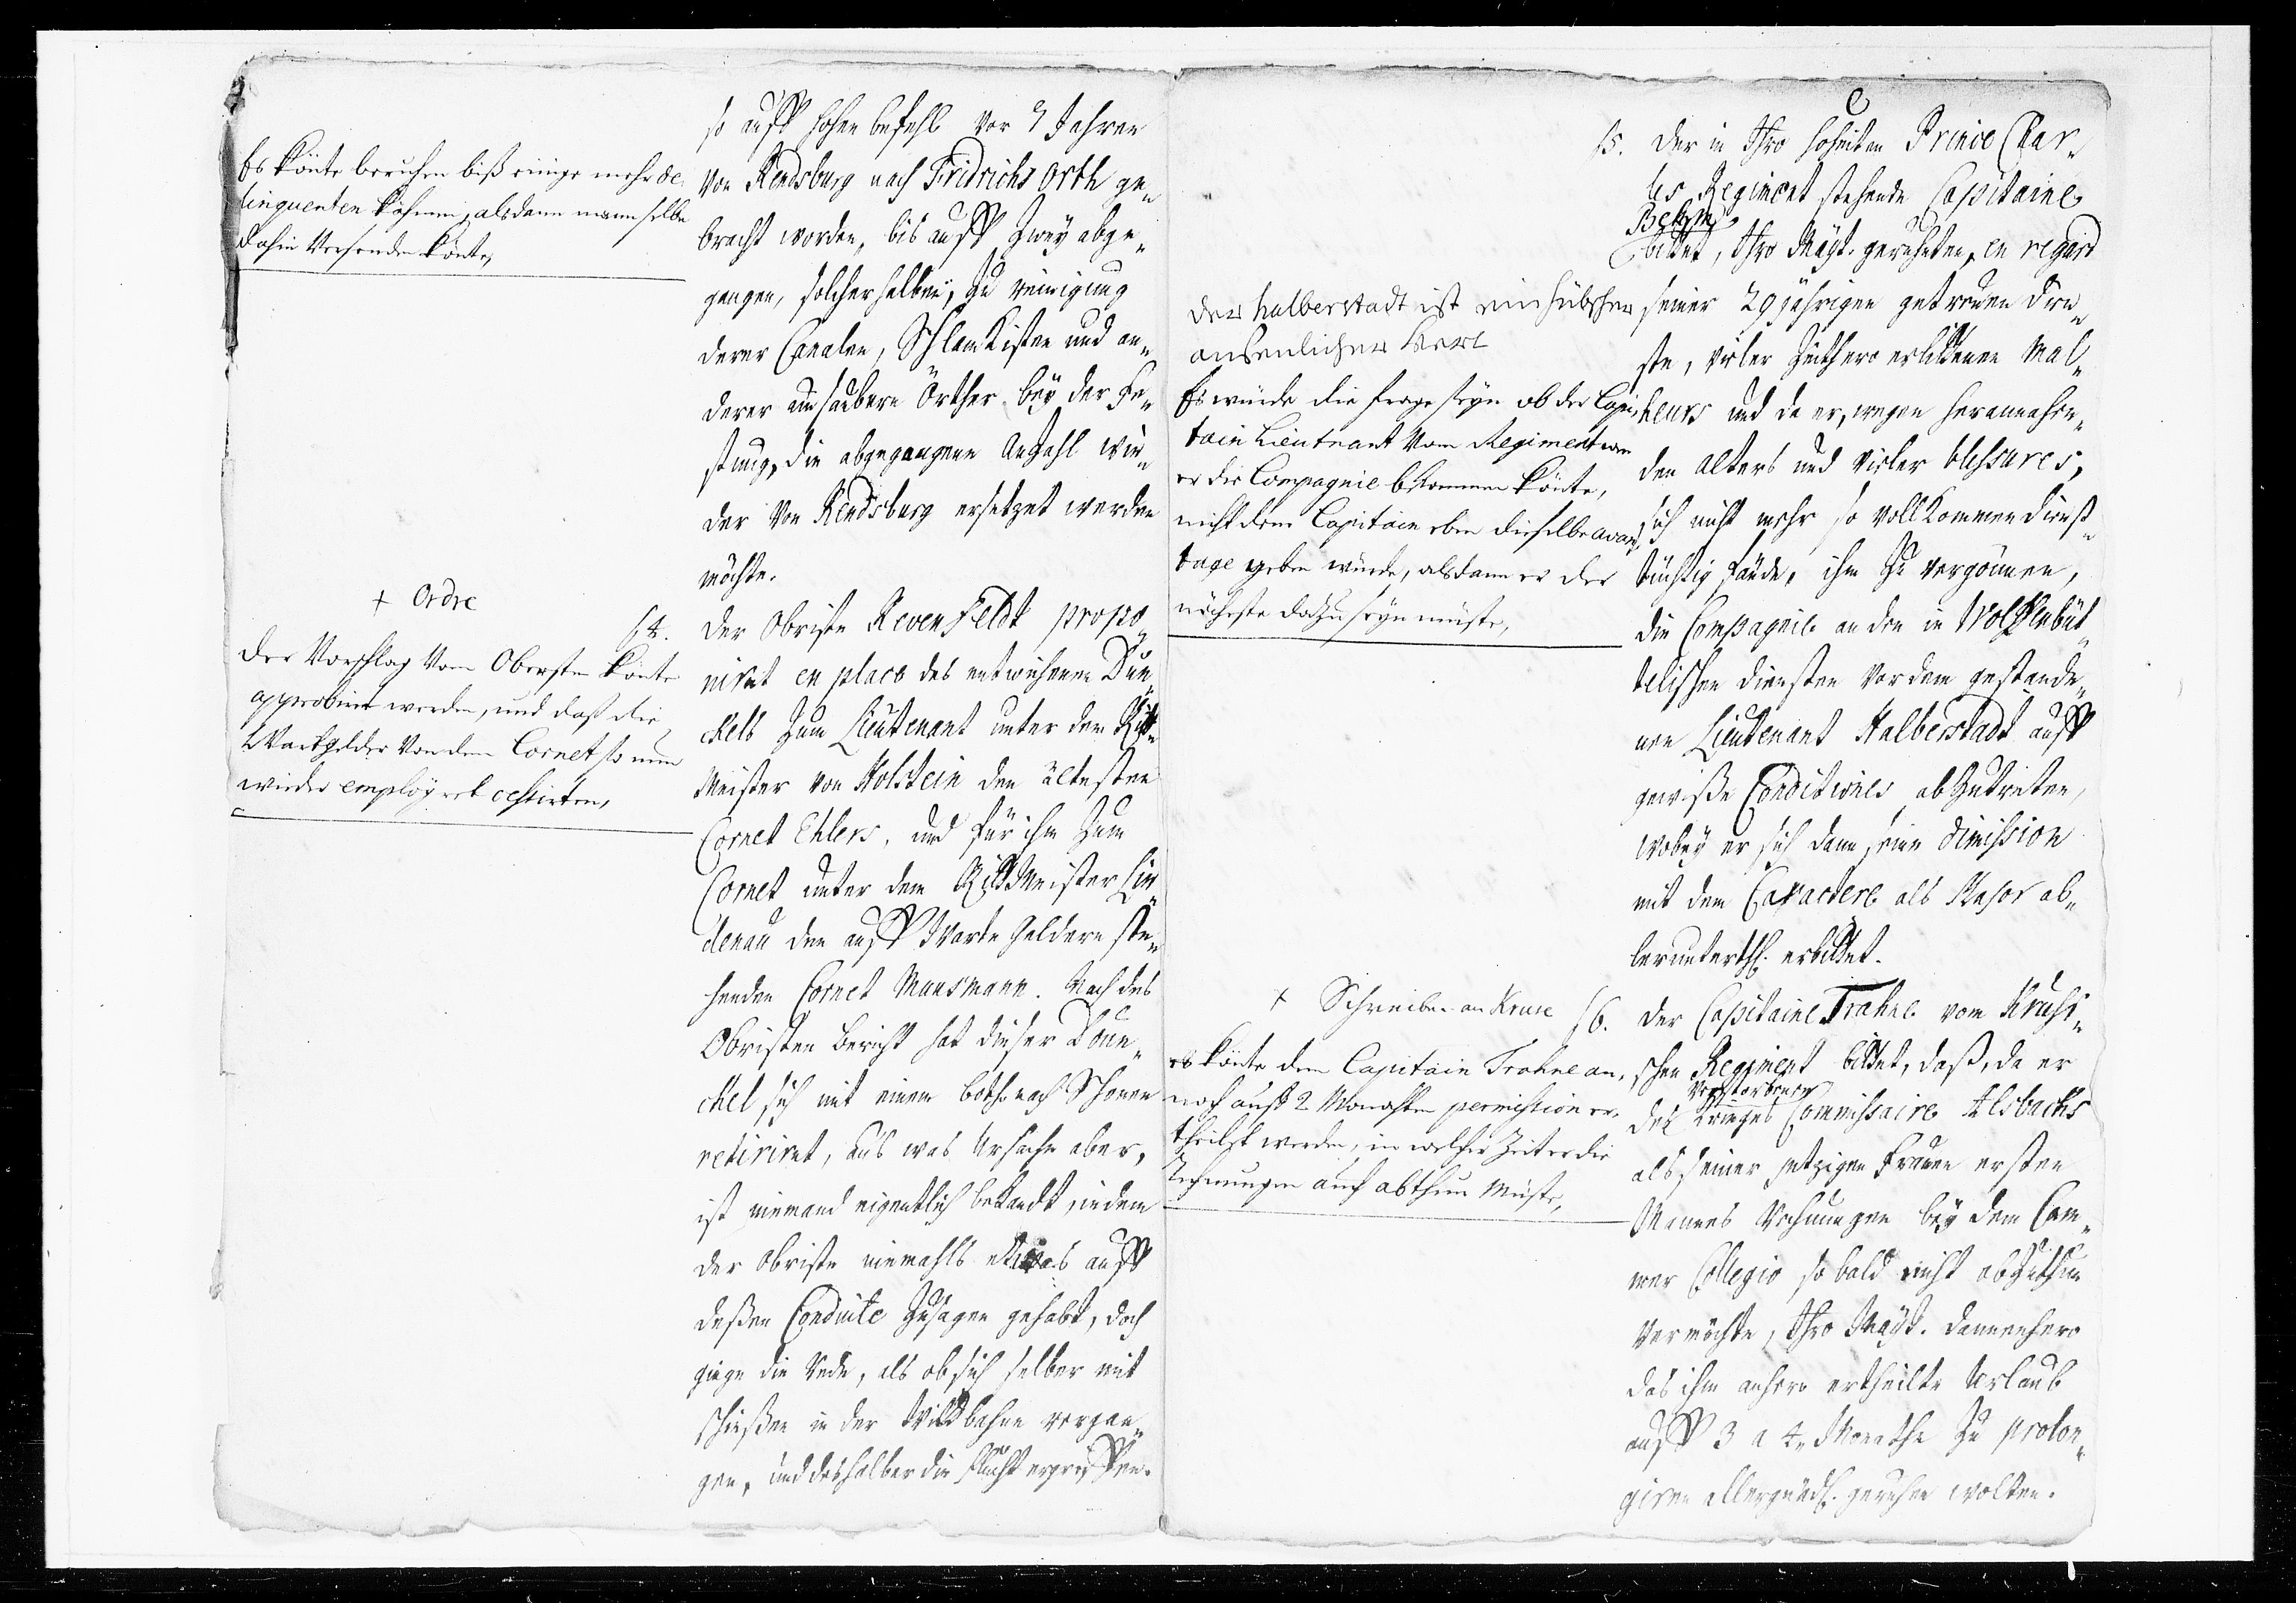 Es könte beruhen biß einige mehr de-
linquenten kähmen, alsdann mann selbe
dahin Versenden könte,
+ Ordre
Der Vorschlag Vom Obersten könte
approbiret werden, und daß die
Wartgelder Von dem Cornet so nun
wieder employret cessirten,
so auff hohen befehl vor 7 Jahren
von Rendsburg nach Fridrichs Orth ge„
bracht worden, bis auff Zwey abge„
gangen, solcherhalben, Zu reinigung
derer Canalen, Schlam Kisten und an„
derer unsaubern Örther bey der Fe„
stung, die abgegangene Anzahl wie„
der Von Rendsburg ersetzet werden
möchte.
14. Der Obriste Revenfeldt propo„
niret en place des entwichenen Dun„
ckels Zum Lieutenant unter dem Ritt„
Meister von Holstein den ältesten
Cornet Ehlers, und für ihm Zum
Cornet unter dem RittMeister Lin„
denau den auff Warte Geldern ste„
henden Cornet Mausmann. Nach des
Obristen Bericht hat dieser Dun„
ckel sich mit einem Both nach Schonen
retiriret, aus was Ursache aber,
ist niemand eigentlich bekandt, indem
der Obriste niemahls etwas auff
deßen Conduite Zusagen gehabt, doch
ginge die Rede, als ob sich selber mit
schießen in der Wildbahne vergan„
gen, und deshalber die flucht ergriffen.
der Halberstadt ist ein hübscher
ansenlicher Kerl
Es würde die frage seyn ob der Capi„
tain Lieutnant Vom Regiment wan
er die Compagnie bekommen könte,
nicht dem Capitain eben dieselbe avan„
tage geben würde, alsdann er der
nächeste dazu seyn müste,
+ Schreiben an Kruse
es könte dem Capitain Trahne an„
noch auff 2 Monahten permission er„
theilet werden, in welcher Zeit er die
Rechnungen auch abthun müste,
15. Der in Ihro Hoheiten Prince Char„
les Regiment stehende Capitaine
Behm
bittet, Ihro Mayt. geruheten, en regard
seiner 29 jährigen getreuen Dien„
ste, vieler Zeithero erlittenen Mal„
heurs und da er, wegen herannahen„
den Alters und vieler blessures,
sich nicht mehr so vollkommen dienst„
tüchtig fünde, ihm Zu vergönnen,
die Compagnie an den in Wolffenbüt„
telischen Diensten vordem gestande„
nen Lieutenant Halberstadt auff
gewiße Conditiones abZutreten,
wobey er sich dann seine dimission
mit dem Caractere als Major al„
lerunterth. erbittet.
16. Der Capitaine Trahne vom Kruse„
schen Regiment bittet, daß, da er
verstorbenen
des Krieges Commissaire Alsbachs
als seiner jetzigen Frauen ersten
Mannes Rechnungen bey dem Cam„
mer Collegio so bald nicht abZuthun
vermöchte, Ihro Mayt. dannenhero
das ihm anhero ertheilte Urlaub
auff 3 a 4. Monathe Zu prolon„
giren allergnädst. geruhen wolten.